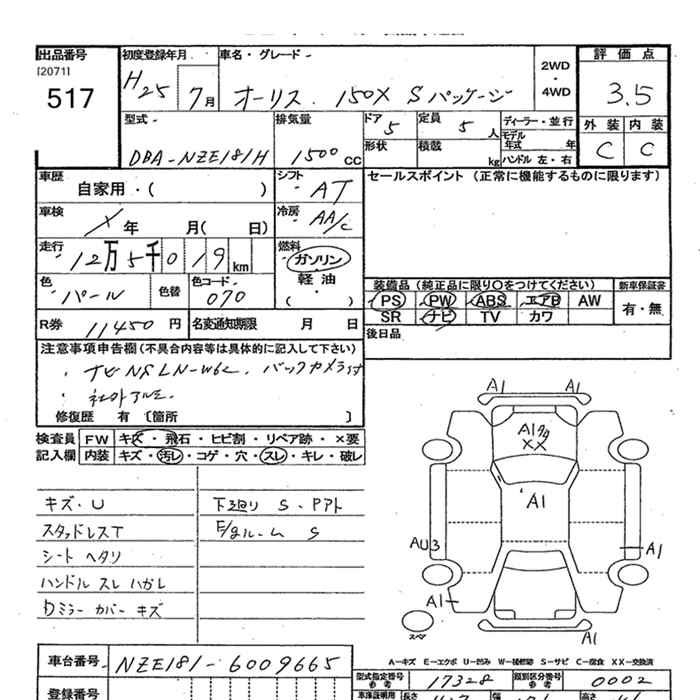 出品番号 初度登録年月 車名・グレード 2WD・4WD 評価点
[2071]
517 H25 7月 オーリス 150X Sパッケージ 3.5
型式 排気量 ドア 5 定員 5人 ディーラー・並行 外装 内装
モデル年式 年
DBA-NZE181H 1500cc 形状 積載 kg ハンドル 左・右 C C
車歴 自家用・( ) シフト AT セールスポイント (正常に機能するものに限ります)
車検 X年 月( 日) 冷房 AA/C
走行 12万5千019km 燃料 ガソリン
軽油
( )
色 パール 色替 色コード 070 装備品 (純正品に限り○をつけてください) 新車保証書
PS PW ABS エアB AW 有・無
R券 11450円 名変通知期限 月 日 SR ナビ TV カワ
後日品
注意事項申告欄 (不具合内容等は具体的に記入して下さい)
・ナビNSLN-W62 バックカメラ付
・社外アルミ
修復歴 有 〔箇所 〕
検査員 FW キズ・飛石・ヒビ割・リペア跡・×要
記入欄 内装 キズ・汚レ・コゲ・穴・スレ・キレ・破レ
キズ・U 下廻り S・Pアト
スタッドレスT E/gルーム S
シート ヘタリ
ハンドル スレ ハガレ
Dミラー カバー キズ
A1 A1
A1
XX
A1
AU3 A1
A1
スペア
A1
A-キズ E-エクボ U-凹み W-補修跡 S-サビ C-腐食 XX-交換済
車台番号 NZE181-6009665 型式指定番号 17328 類別区分番号 0002
参考 参考
登録番号 車庫証明用 長さ 幅 高さ